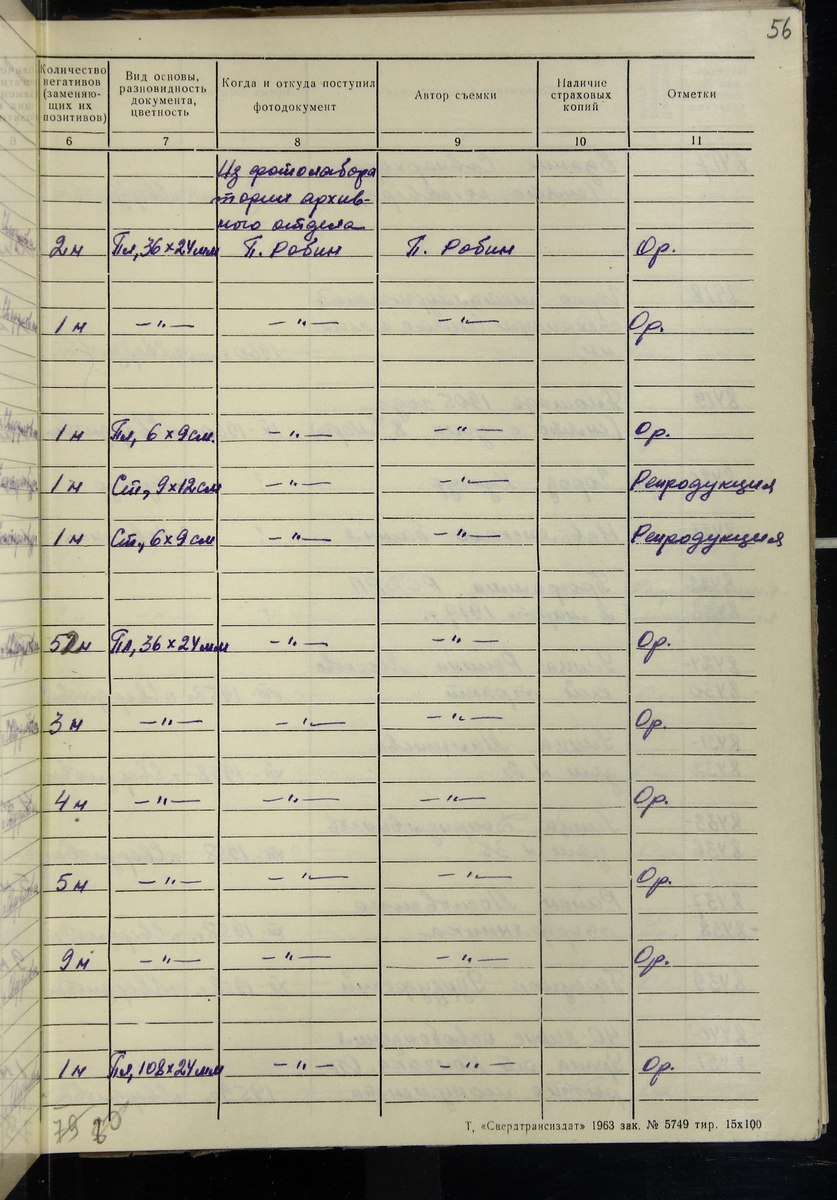 56
Количество негативов (заменяющих их позитивов) | Вид основы, разновидность документа, цветность | Когда и откуда поступил фотодокумент | Автор съемки | Наличие страховых копий | Отметки
6 | 7 | 8 | 9 | 10 | 11
Из фотолабора
тории архив-
ного отдела
2 н | Пл, 36×24 мм | П. Робин | П. Робин | Ор.
1 н | —"— | —"— | —"— | Ор.
1 н | Пл, 6×9 см. | —"— | —"— | Ор.
1 н | Ст, 9×12 см | —"— | —"— | Репродукция
1 н | Ст, 6×9 см | —"— | —"— | Репродукция
52 н | Пл, 36×24 мм | —"— | —"— | Ор.
3 н | —"— | —"— | —"— | Ор.
4 н | —"— | —"— | —"— | Ор.
5 н | —"— | —"— | —"— | Ор.
9 н | —"— | —"— | —"— | Ор.
1 н | Пл, 108×24 мм | —"— | —"— | Ор.
Т, «Свердтрансиздат» 1963 зак. № 5749 тир. 15х100